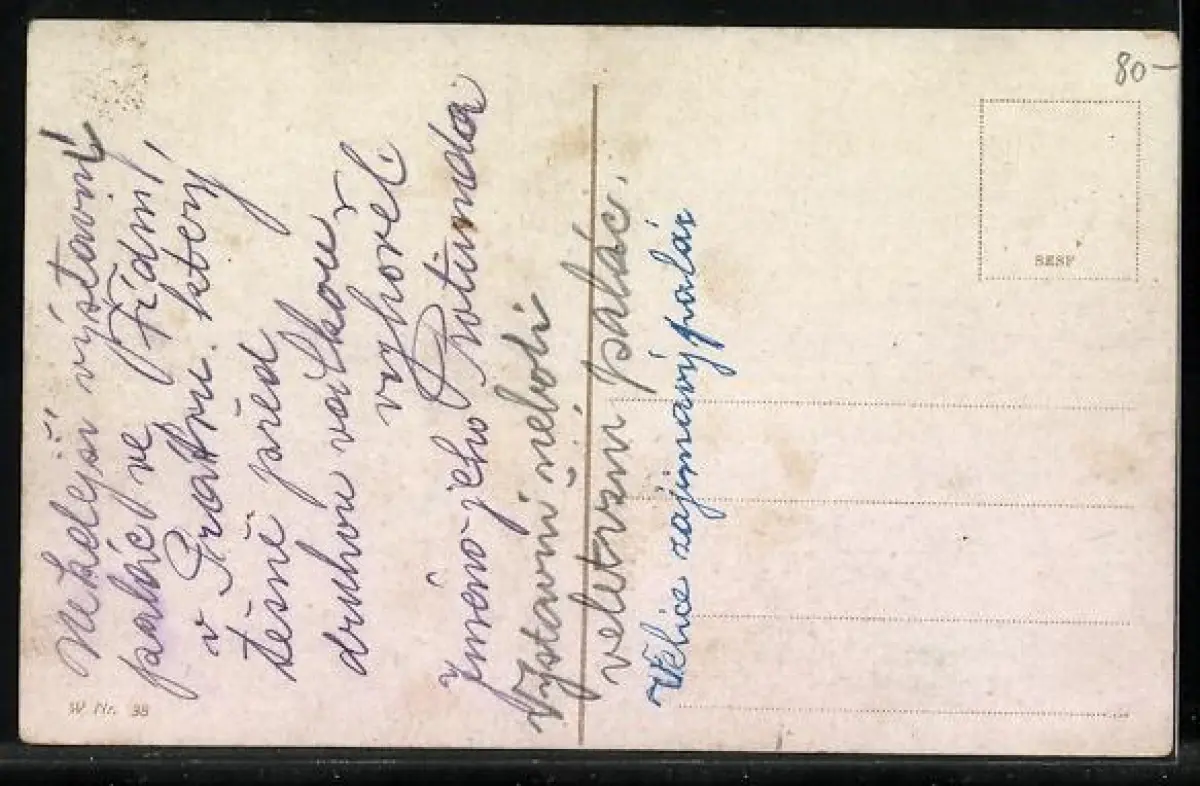 Někdejší výstavní
palác ve Vídni,
v Pratru. který
těsně před
druhou válkou
vyhořel.
jméno jeho Rotunda
Výstavní neboli
veletržní palác.
Velice zajímavý palác
80-
SESF
W Nr. 38